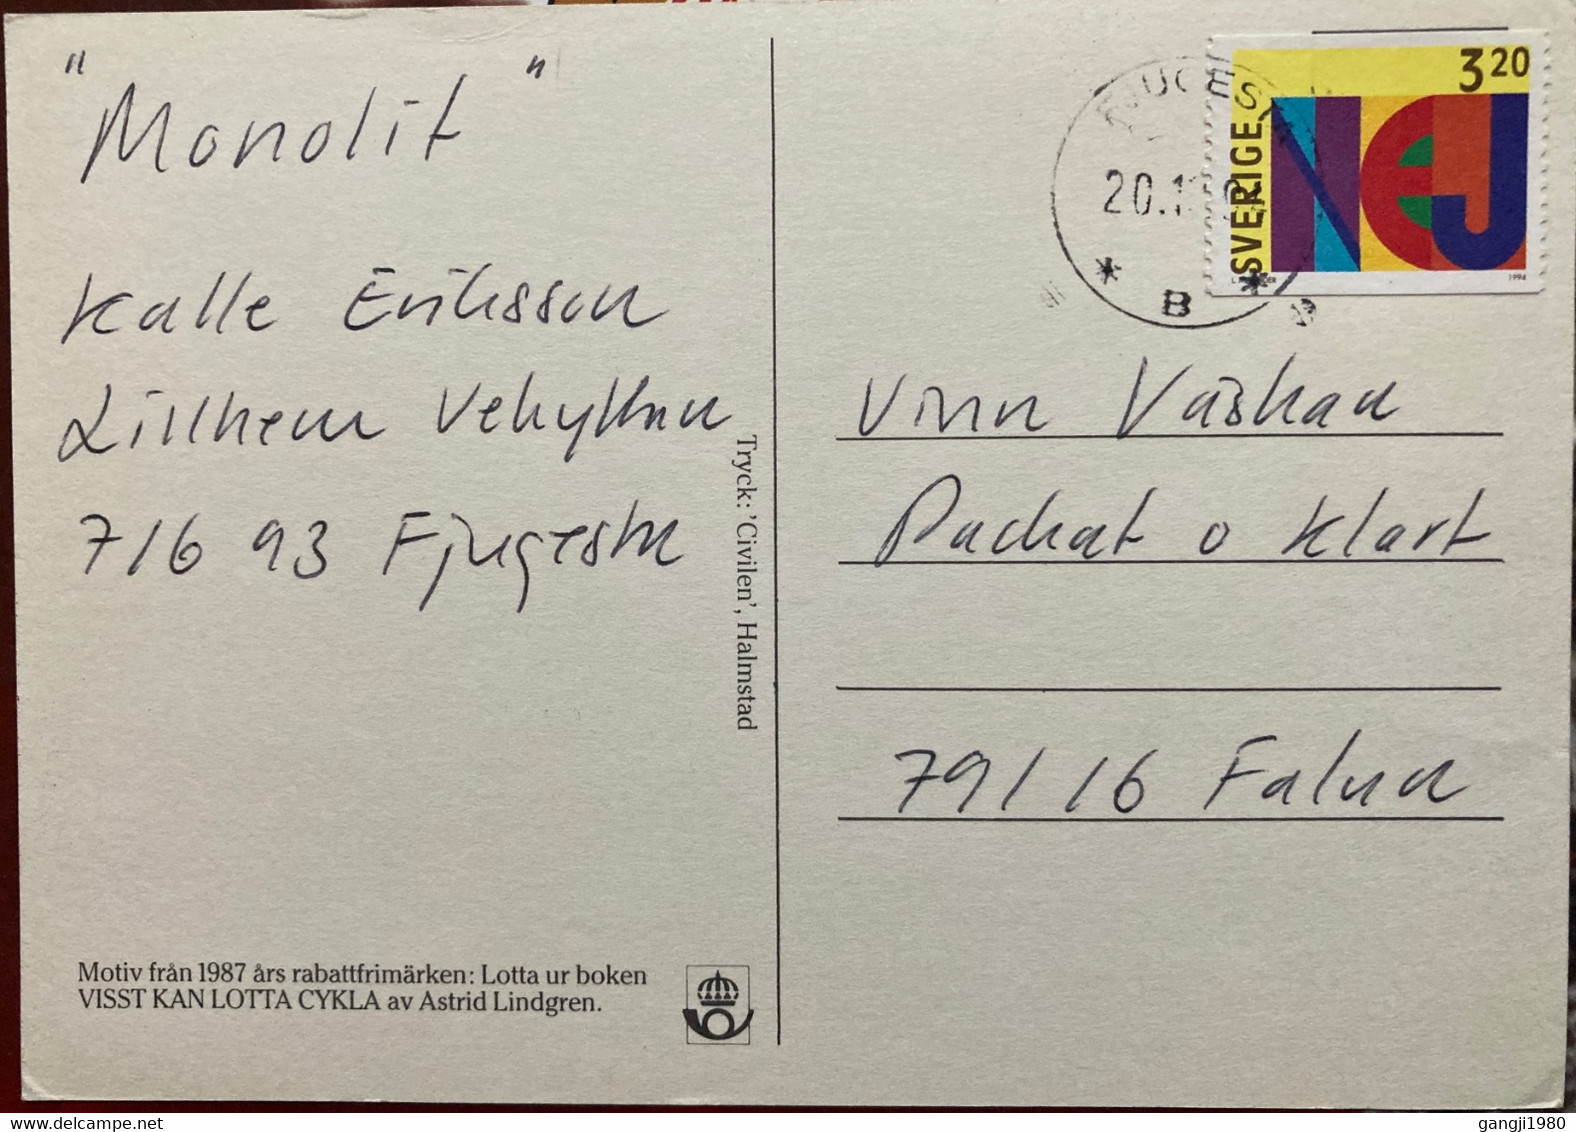 "Monolit"
Kalle Eriksson
Lillhem Vekyttan
716 93 Fjugesta
Motiv från 1987 års rabattfrimärken: Lotta ur boken
VISST KAN LOTTA CYKLA av Astrid Lindgren.
Tryck: 'Civilen', Halmstad
FJUGESTA
20.1
B
SVERIGE
3 20
NEJ
1994
Vinn Väskan
Packat o Klart
791 16 Falun
delcampe.net
gangji1980